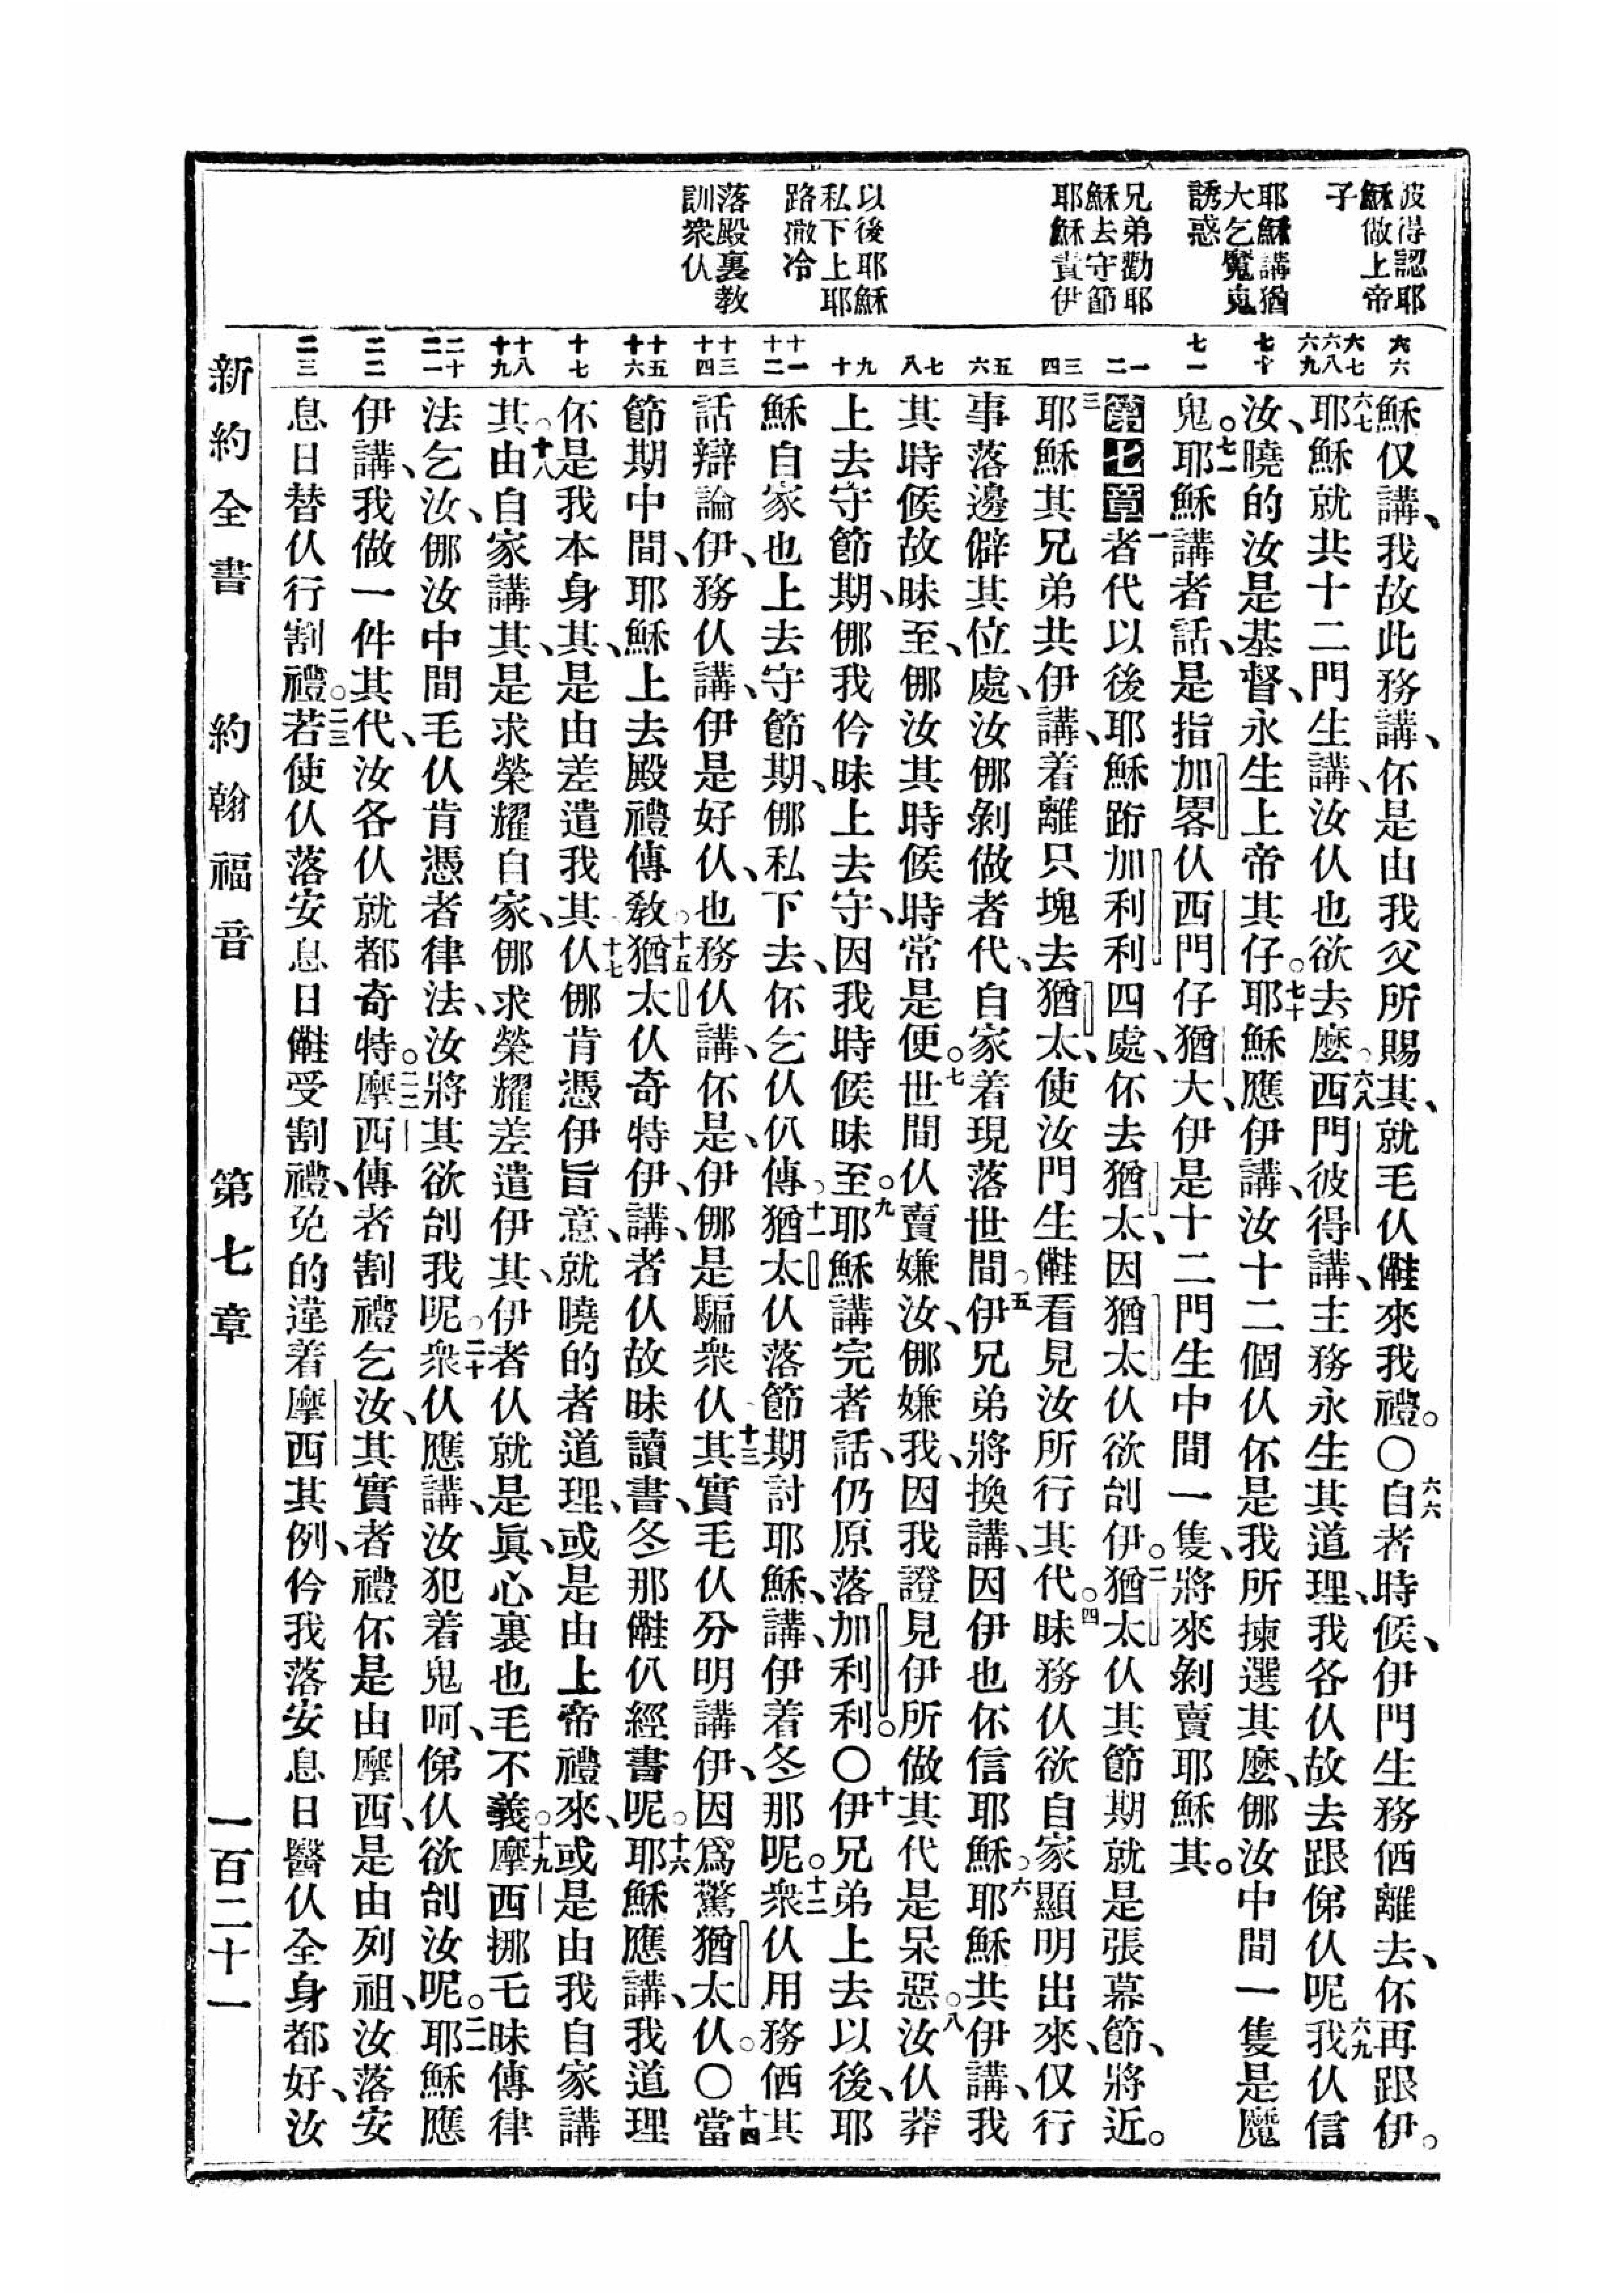 彼得認耶
穌做上帝
子
耶穌講猶
大乞魔鬼
誘惑
兄弟勸耶
穌去守節
耶穌責伊
以後耶穌
私下上耶
路撒冷
落殿裏教
訓衆仈
六六
六七
六八
六九
七十
七一
一
二
三
四
五
六
七
八
九
十
十一
十二
十三
十四
十五
十六
十七
十八
十九
二十
二一
二二
二三
穌仅講、我故此務講、伓是由我父所賜其、就毛仈𣍐來我禮。〇六六自者時候、伊門生務価離去、伓再跟伊。
六七耶穌就共十二門生講、汝仈也欲去麽。六八西門彼得講、主務永生其道理、我各仈故去跟俤仈呢。六九我仈信
汝、曉的汝是基督、永生上帝其仔。七十耶穌應伊講、汝十二個仈伓是我所揀選其麽、㑚汝中間一隻是魔
鬼。七一耶穌講者話、是指加畧仈西門仔猶大、伊是十二門生中間一隻、將來剝賣耶穌其。
第七章 一者代以後、耶穌跻加利利四處、伓去猶太、因猶太仈欲刣伊。二猶太仈其節期就是張幕節、將近。
三耶穌其兄弟共伊講、着離只塊去猶太、使汝門生𣍐看見汝所行其代。四昧務仈欲自家顯明出來、仅行
事落邊僻其位處、汝㑚剝做者代、自家着現落世間。五伊兄弟將換講、因伊也伓信耶穌。六耶穌共伊講、我
其時候故昧至、㑚汝其時候、時常是便。七世間仈賣嫌汝、㑚嫌我、因我證見伊所做其代是呆惡。八汝仈莽
上去守節期、㑚我仱昧上去守、因我時候昧至。九耶穌講完者話、仍原落加利利。〇十伊兄弟上去以後、耶
穌自家也上去守節期、㑚私下去、伓乞仈仈傳。十一猶太仈落節期討耶穌、講、伊着冬那呢。十二衆仈用務価其
話辯論伊、務仈講、伊是好仈、也務仈講、伓是、伊㑚是騙衆仈。十三其實毛仈分明講伊、因爲驚猶太仈。〇十四當
節期中間、耶穌上去殿禮傳教。十五猶太仈奇特伊、講、者仈故昧讀書、冬那𣍐仈經書呢。十六耶穌應講、我道理
伓是我本身其、是由差遣我其。十七仈㑚肯憑伊旨意、就曉的者道理、或是由上帝禮來、或是由我自家講
其。十八由自家講其、是求榮耀自家、㑚求榮耀差遣伊其、伊者仈就是眞、心裏也毛不義。十九摩西挪乇昧傳律
法乞汝、㑚汝中間毛仈肯憑者律法、汝將其欲刣我呢。二十衆仈應講、汝犯着鬼呵、俤仈欲刣汝呢。二一耶穌應
伊講、我做一件其代、汝各仈就都奇特。二二摩西傳者割禮乞汝、其實者禮伓是由摩西、是由列祖、汝落安
息日替仈行割禮。二三若使仈落安息日𣍐受割禮、免的違着摩西其例、仱我落安息日醫仈全身都好、汝
新約全書 約翰福音 第七章 一百二十一